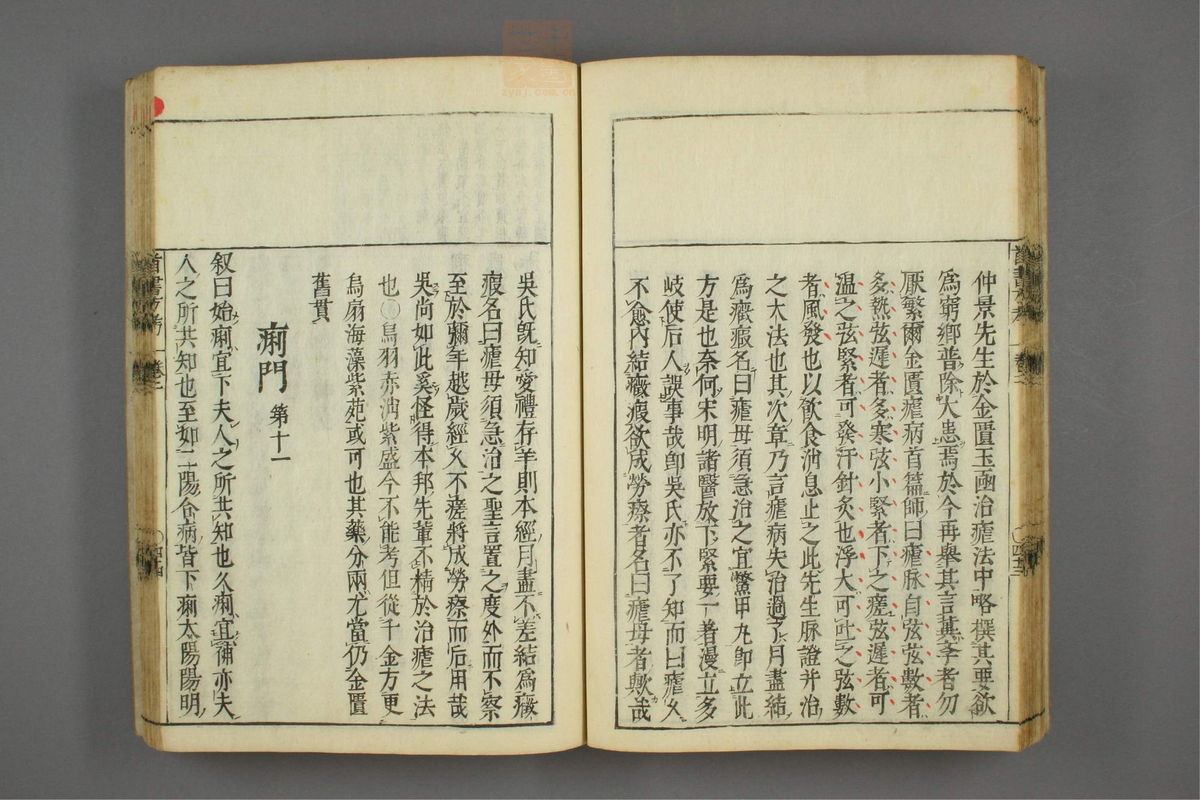 仲景先生於金匱玉函治瘧法中略撰其要欲
爲窮鄉普除大患焉於今再舉其言冀李者勿
厭繁爾金匱瘧病首篇師曰瘧脉自弦弦數者
多熱弦遲者多寒弦小緊者下之瘥弦遲者可
温之弦緊者可發汗針灸也浮大可吐之弦數
者風發也以飲食消息止之此先生脉證并治
之大法也其次章乃言瘧病失治過了月盡結
爲癥瘕名曰瘧母須急治之宜鱉甲丸即立此
方是也奈何宋明諸醫放下緊要一著漫立多
岐使后人誤事哉即吳氏亦不了知而曰瘧久
不愈内結癥瘕欲成勞瘵者名曰瘧母者歟哉
吳氏旣知愛禮存羊則本經月盡不差結爲癥
瘕名曰瘧母須急治之聖言置之度外而不察
至於彌年越歲經久不瘥將成勞瘵而后用哉
吳尚如此奚怪得本邦先輩不精於治瘧之法
也○烏羽赤消紫盛今不能考但從千金方更
烏扇海藻紫苑或可也其藥分兩尤當仍金匱
舊貫
痢門 第十一
叙曰始痢宜下夫人之所共知也久痢宜補亦夫
人之所共知也至如二陽合病皆下痢太陽陽明
四十三
四十四